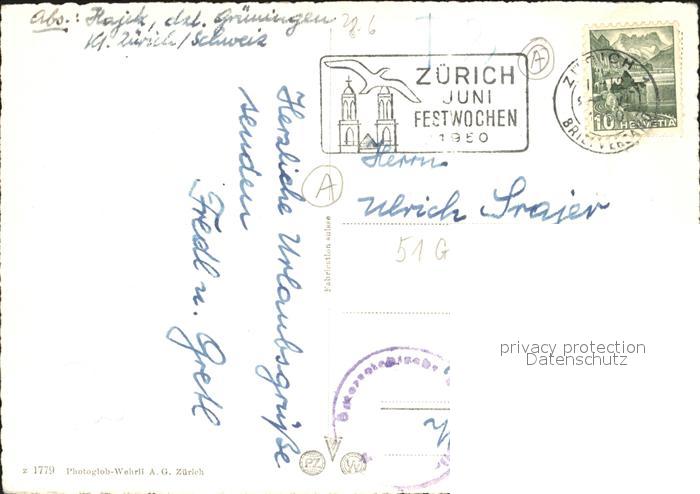 Abs.: Hajek, dzt. Grüningen
Kt. Zürich/Schweiz
ZÜRICH
JUNI
FESTWOCHEN
1950
ZÜRICH
BRIEFVERSAND
10 HELVETIA
A
A
Herzliche Urlaubsgrüße
senden
Fredl u. Gretl
Fabrication suisse
Herrn
Ulrich Srajer
51 G
privacy protection
Datenschutz
Österreichische
PZ
W
z 1779 Photoglob-Wehrli A. G. Zürich